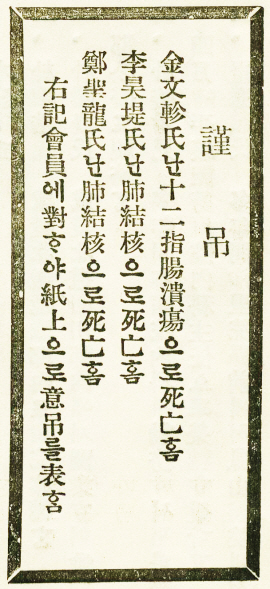 謹吊
金文軫氏난十二指腸潰瘍으로死亡홈
李昊堤氏난肺結核으로死亡홈
鄭聖龍氏난肺結核으로死亡홈
右記會員에對호야紙上으로意吊를表홈